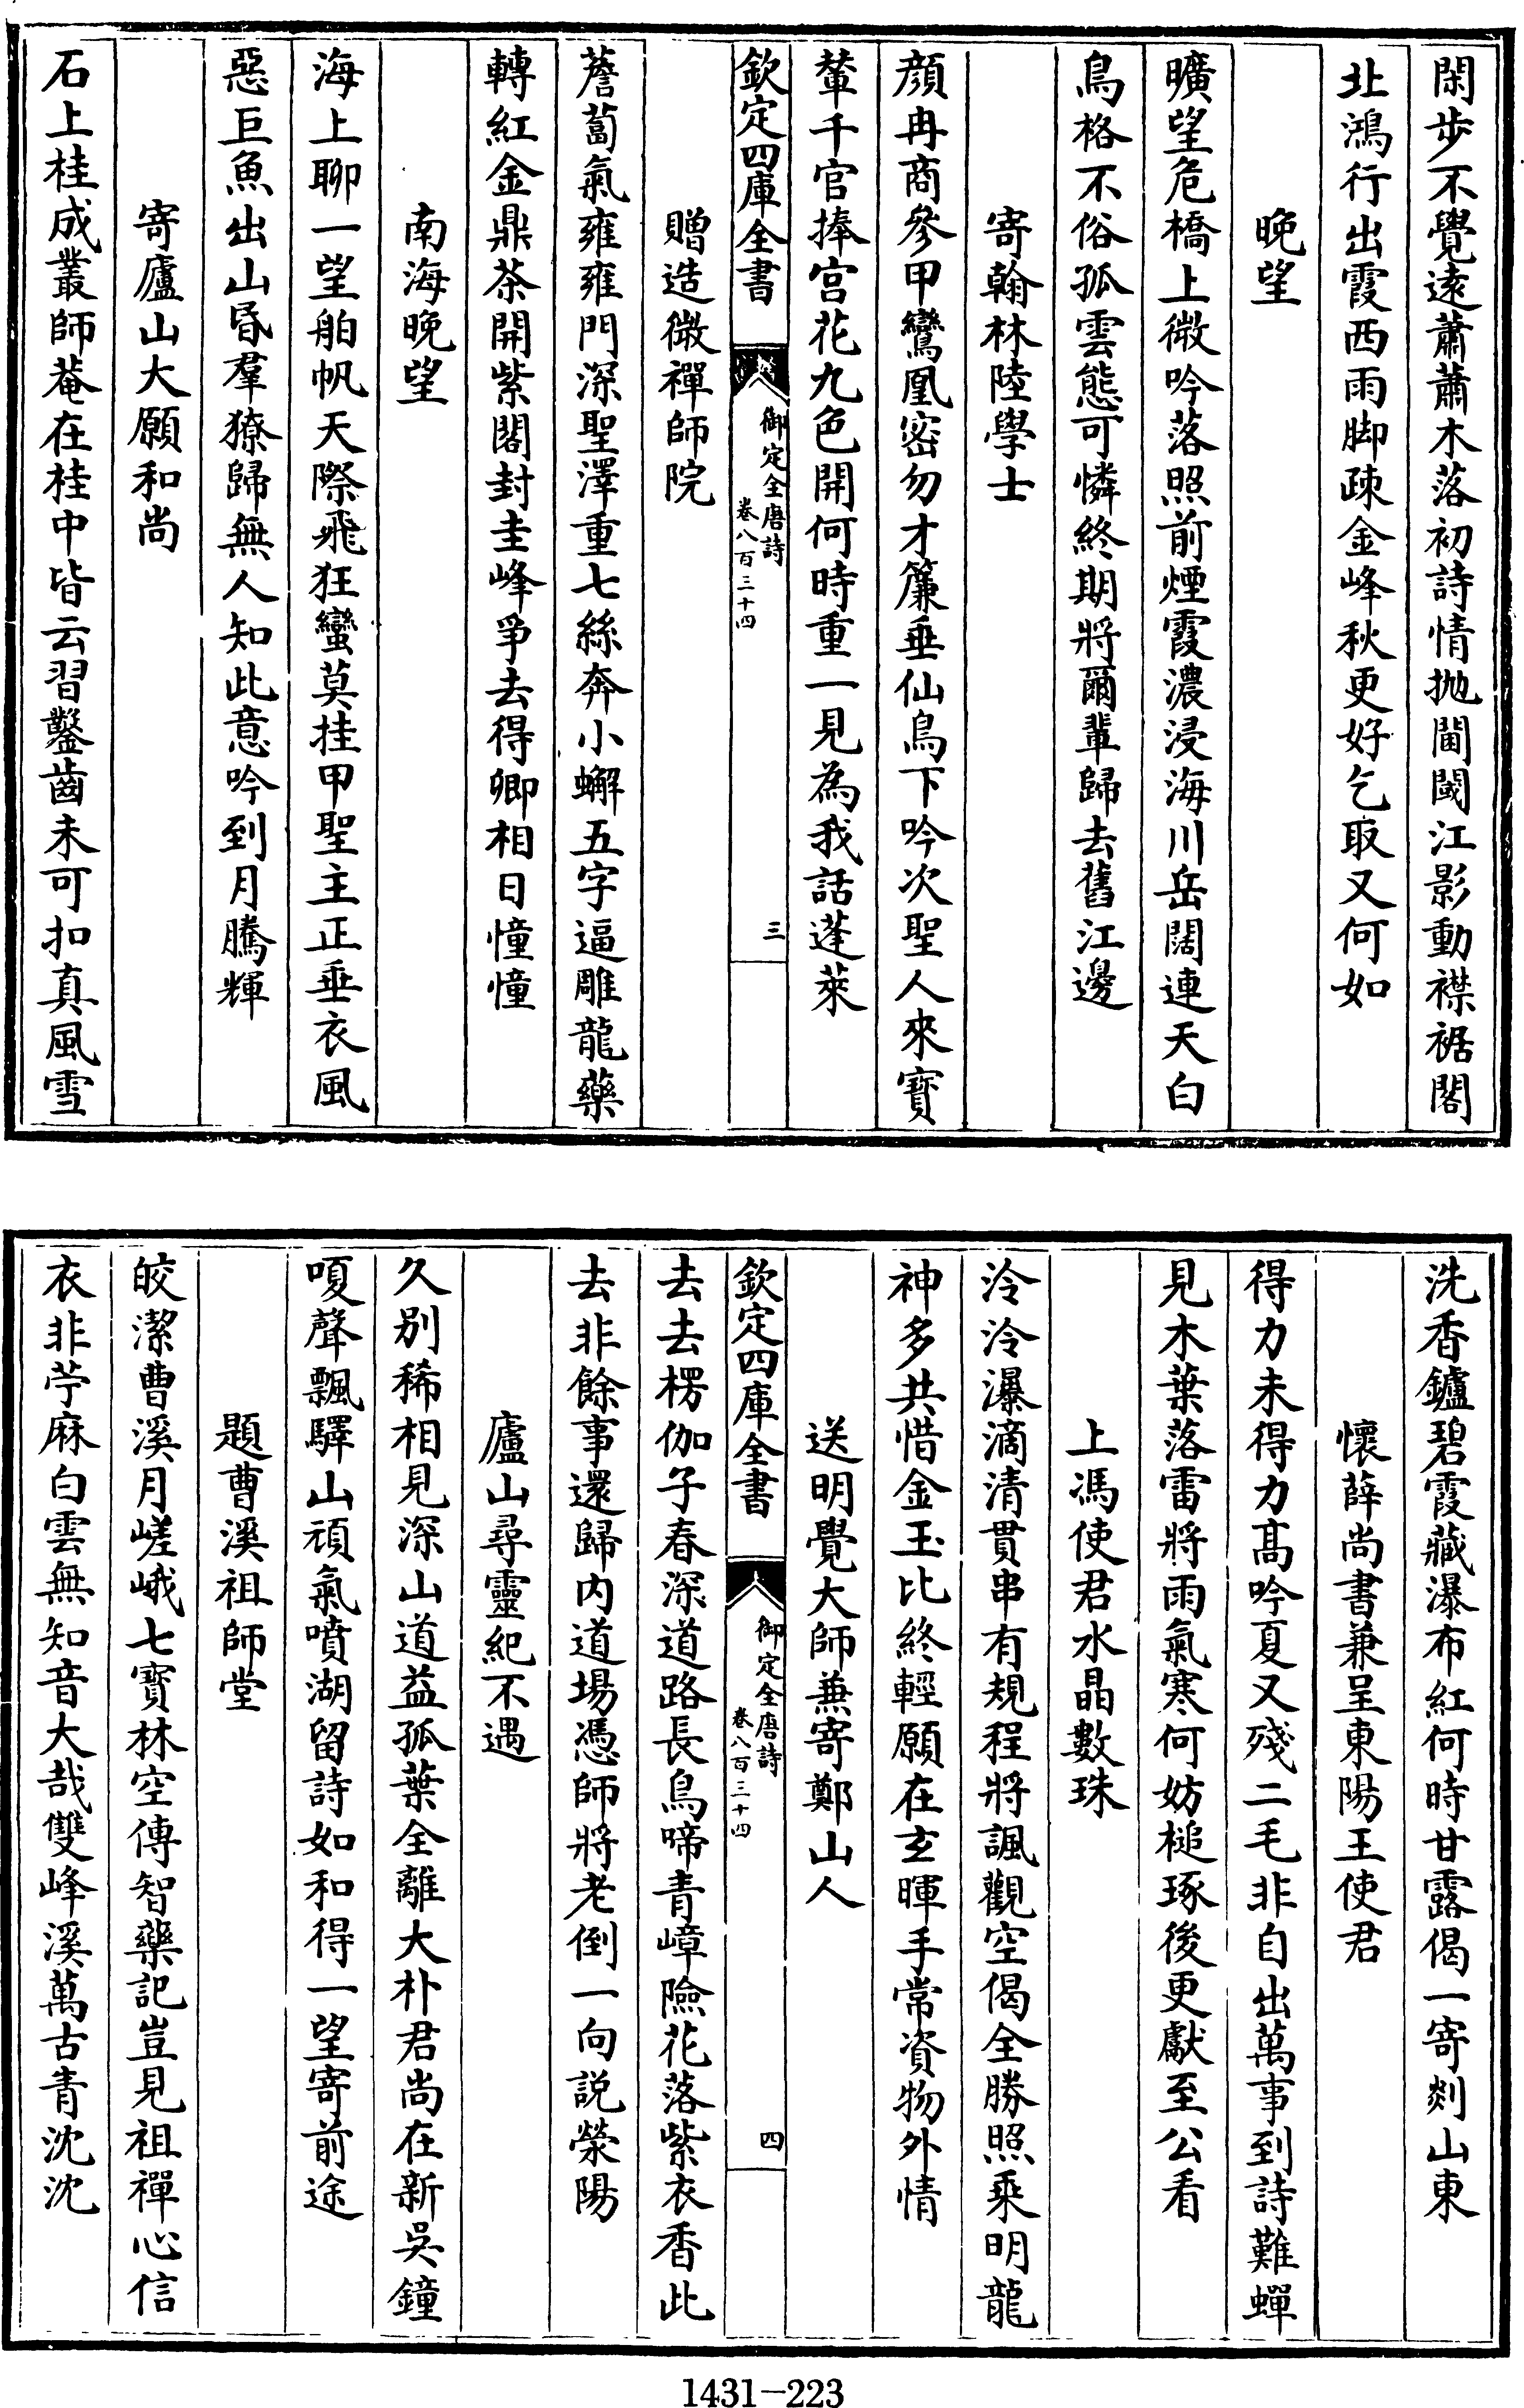 閑步不覺遠蕭蕭木落初詩情抛閫閾江影動襟裾閣
北鴻行出霞西雨脚疎金峰秋更好乞取又何如
晚望
曠望危橋上微吟落照前煙霞濃浸海川岳闊連天白
鳥格不俗孤雲態可憐終期將爾輩歸去舊江邊
寄翰林陸學士
顏冉商參甲鸞凰密勿才簾垂仙鳥下吟次聖人來寳
輦千官捧宫花九色開何時重一見為我話蓬萊
欽定四庫全書
御定全唐詩
卷八百三十四
三
贈造微禪師院
薝蔔氣雍雍門深聖澤重七絲奔小蠏五字逼雕龍藥
轉紅金鼎茶開紫閣封圭峰爭去得卿相日憧憧
南海晚望
海上聊一望舶帆天際飛狂蠻莫挂甲聖主正垂衣風
惡巨魚出山昏羣獠歸無人知此意吟到月騰輝
寄廬山大願和尚
石上桂成叢師菴在桂中皆云習鑿齒未可扣真風雪
洗香鑪碧霞藏瀑布紅何時甘露偈一寄剡山東
懷薛尚書兼呈東陽王使君
得力未得力髙吟夏又殘二毛非自出萬事到詩難蟬
見木葉落雷將雨氣寒何妨槌琢後更獻至公看
上馮使君水晶數珠
泠泠瀑滴清貫串有規程將諷觀空偈全勝照乘明龍
神多共惜金玉比終輕願在玄暉手常資物外情
送明覺大師兼寄鄭山人
欽定四庫全書
御定全唐詩
卷八百三十四
四
去去楞伽子春深道路長鳥啼青嶂險花落紫衣香此
去非餘事還歸内道場憑師將老倒一向説滎陽
廬山尋靈紀不遇
久别稀相見深山道益孤葉全離大朴君尚在新吳鐘
嗄聲飄驛山頑氣噴湖留詩如和得一望寄前途
題曹溪祖師堂
皎潔曹溪月嵯峨七寳林空傳智藥記豈見祖禪心信
衣非苧麻白雲無知音大哉雙峰溪萬古青沈沈
1431-223